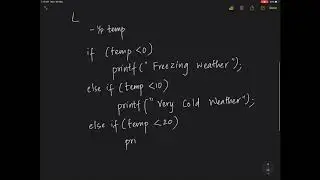 L
- i/p temp
if (temp <0)
printf(" Freezing weather");
else if (temp <10)
printf(" Very Cold Weather");
else if (temp <20)
pri